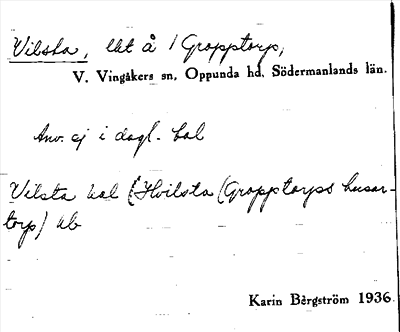 Vilsta, lht å / Gropptorp,
V. Vingåkers sn, Oppunda hd, Södermanlands län.
Anv. ej i dagl. tal
Vilsta kal (Hvilsta (Gropptorps husar-
torp) kb
Karin Bergström 1936